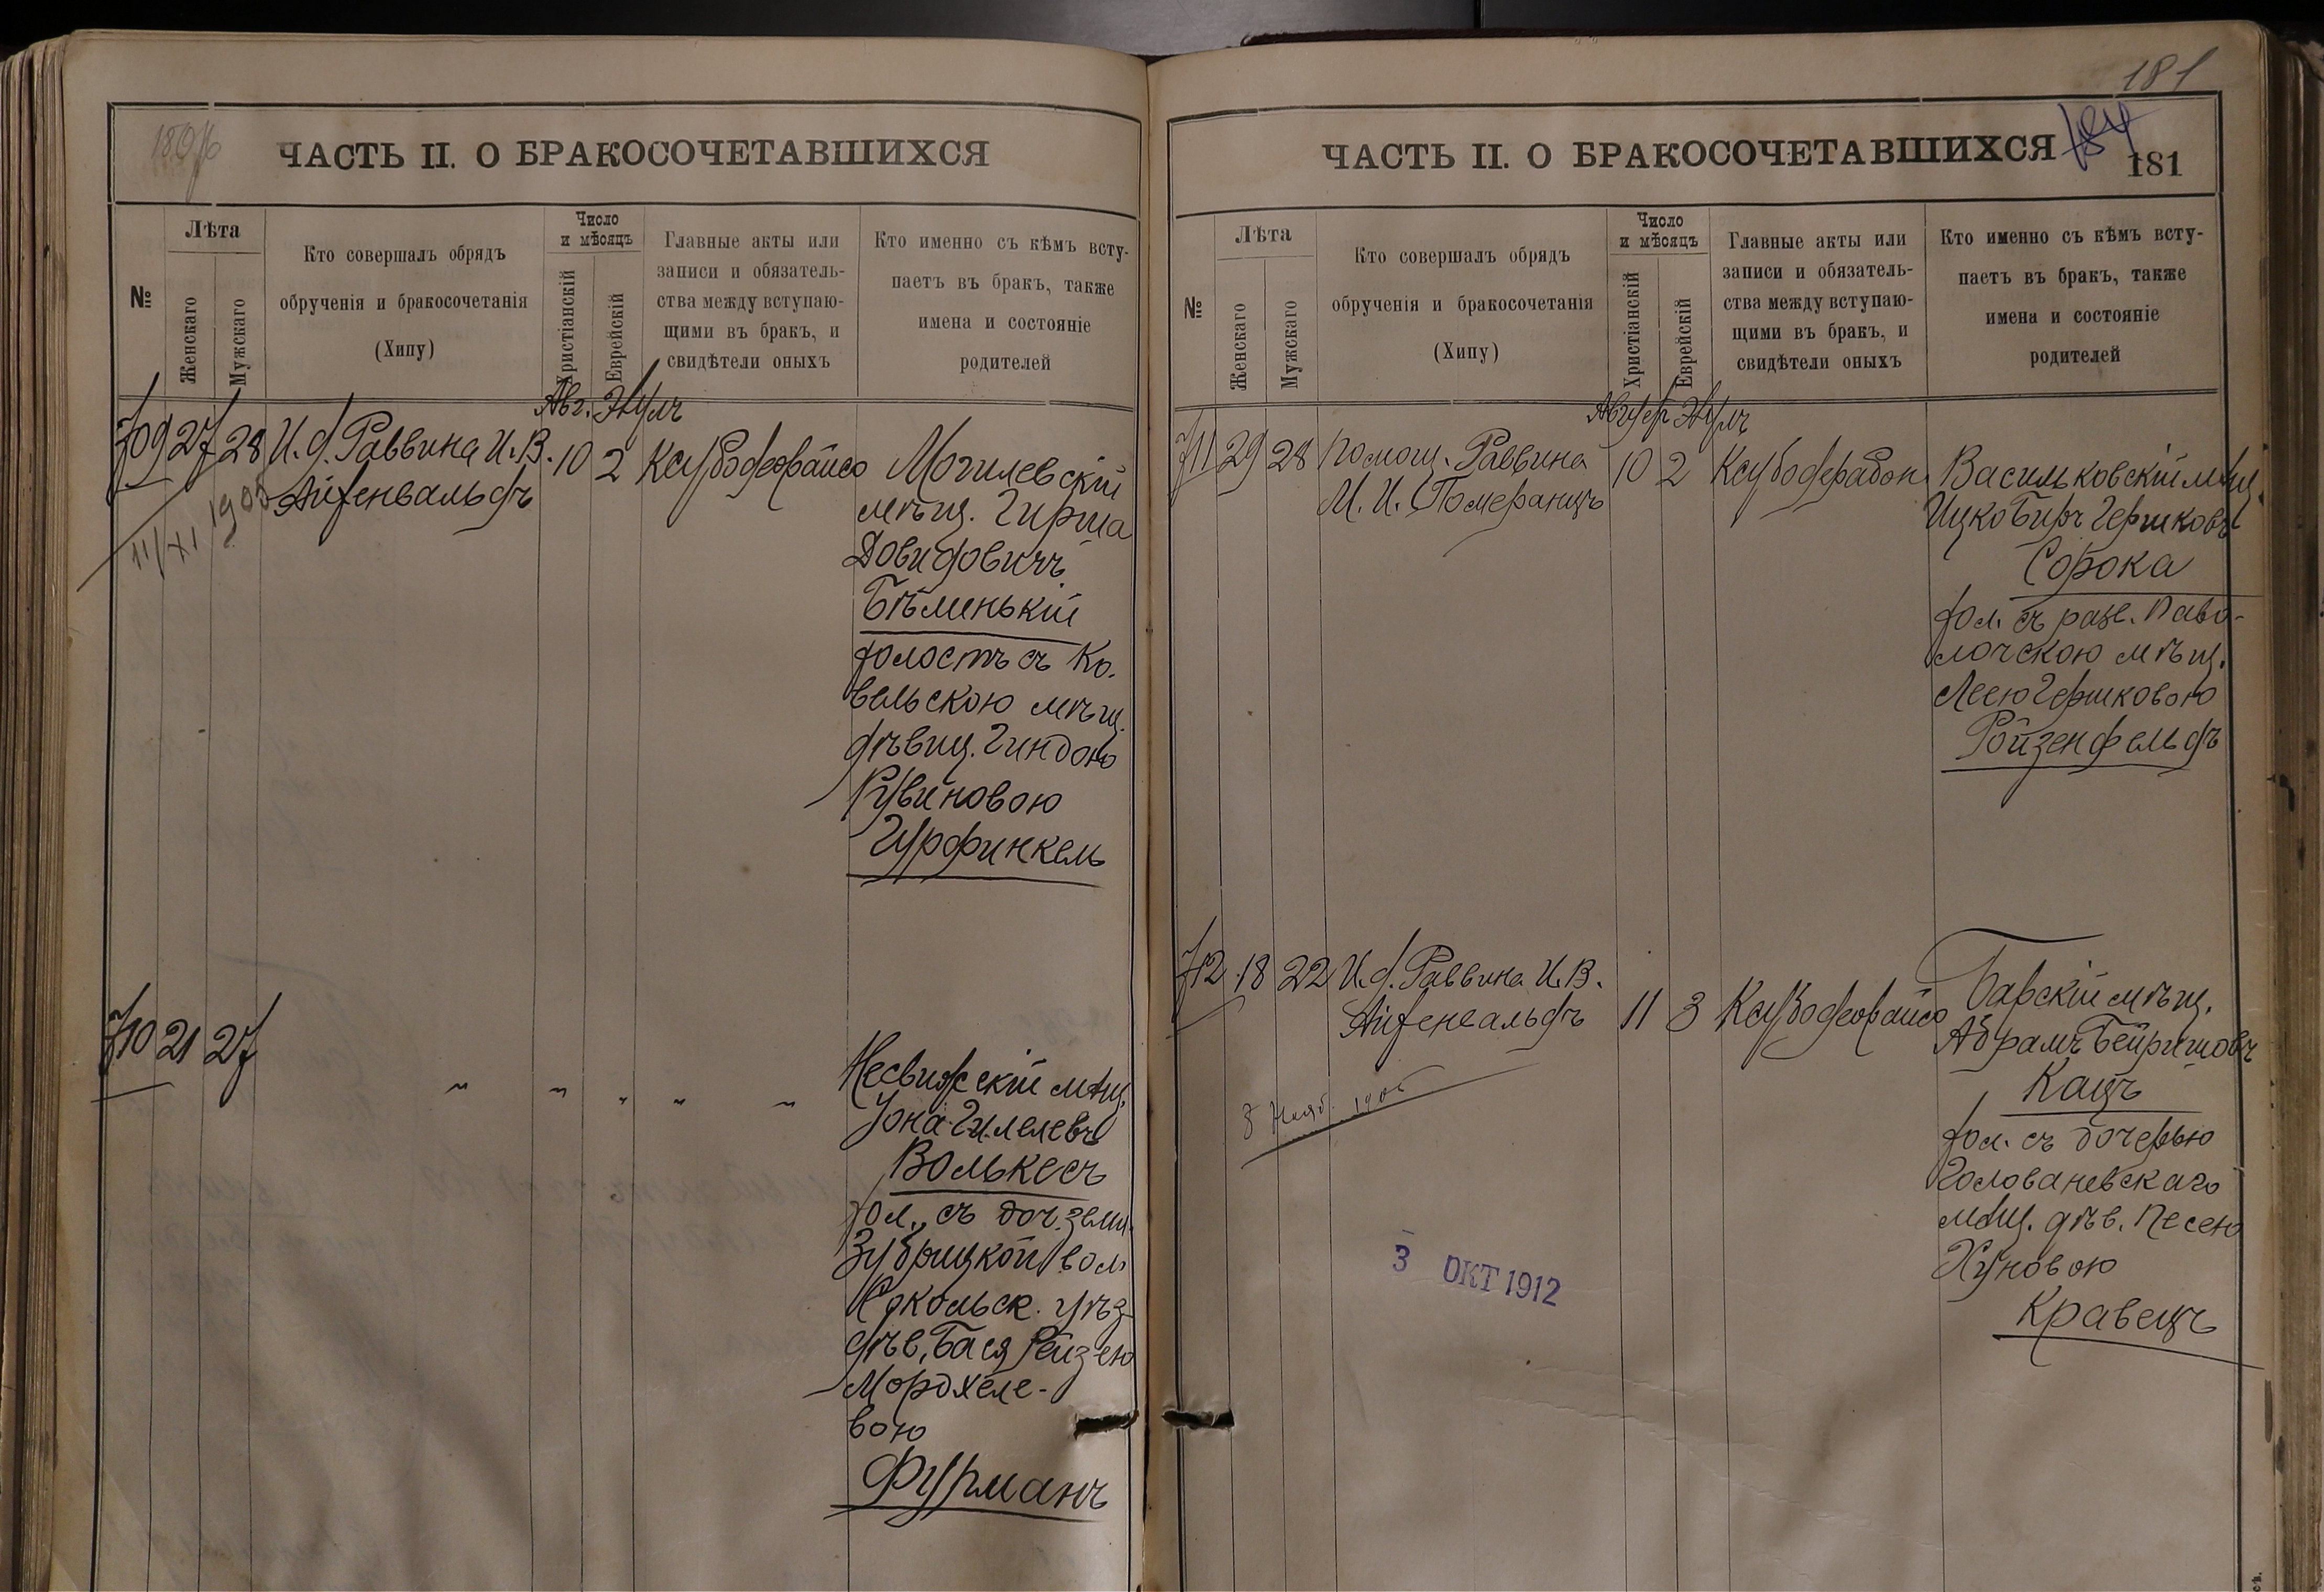 1896
ЧАСТЬ II. О БРАКОСОЧЕТАВШИХСЯ
№
Лѣта
Женскаго
Мужскаго
Кто совершалъ обрядъ
обрученія и бракосочетанія
(Хипу)
Число
и мѣсяцъ
Христіанскій
Еврейскій
Главные акты или
записи и обязатель-
ства между вступаю-
щими въ бракъ, и
свидѣтели оныхъ
Кто именно съ кѣмъ всту-
паетъ въ бракъ, также
имена и состояніе
родителей
Авг. Элулъ
709 27 28 И. д. Раввина И. В. 10 2 Ксубодеорайсо
Айзенвальдъ
11/XI 1905
Могилевскій
мѣщ. Гирша
Довидовичъ
Бѣленькій
холостъ съ Ко-
вельскою мѣщ.
дѣвиц. Гиндою
Рувиновою
Гурфинкель
710 21 27 " " " " "
Несвижскій мѣщ.
Іона Гилелевъ
Волькесъ
хол. съ доч. земл.
Зубрицкой вол.
уѣз.
дѣв. Бася Рейзею
Мордхеле-
вою
Фурманъ
181
184
ЧАСТЬ II. О БРАКОСОЧЕТАВШИХСЯ
181
№
Лѣта
Женскаго
Мужскаго
Кто совершалъ обрядъ
обрученія и бракосочетанія
(Хипу)
Число
и мѣсяцъ
Христіанскій
Еврейскій
Главные акты или
записи и обязатель-
ства между вступаю-
щими въ бракъ, и
свидѣтели оныхъ
Кто именно съ кѣмъ всту-
паетъ въ бракъ, также
имена и состояніе
родителей
Элулъ
711 29 28 Помощ. Раввина 10 2 Ксубодерабон
М. И. Померанцъ
Васильковскій мѣщ.
Ицко Беръ Гершковъ
Сорока
хол. съ разв. Паво-
лочскою мѣщ.
Леею Гершковою
Ройзенфельдъ
712 18 22 И. д. Раввина И. В.
Айзенвальдъ 11 3 Ксубодеорайсо
8 Нояб. 1905
Барскій мѣщ.
Абрамъ Бейришовъ
Кацъ
хол. съ дочерью
Голованевскаго
мѣщ. дѣв. Песею
Хуновою
Кравецъ
3 ОКТ 1912